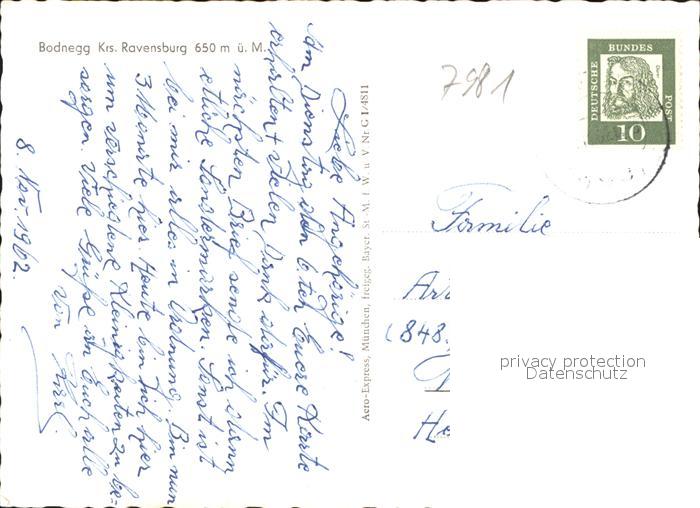 Bodnegg Krs. Ravensburg 650 m ü. M.
8. Nov. 1962.
Liebe Angehörige!
Am Dienstag den 6ten Eure Karte
erhalten + vielen Dank dafür. Im
nächsten Brief sende ich dann
etliche Sondermarken. Sonst ist
bei mir alles in Ordnung. Bin nun
3 Monate hier. Heute bin ich hier
um verschiedene Kleinigkeiten zu be-
sorgen. Viele Grüße an Euch alle
von
Aero-Express, München, freigeg. Bayer. St. M. f. W. u. V Nr. G 1/4811
7981
DEUTSCHE
BUNDES
POST
10
Familie
(848.
He
privacy protection
Datenschutz